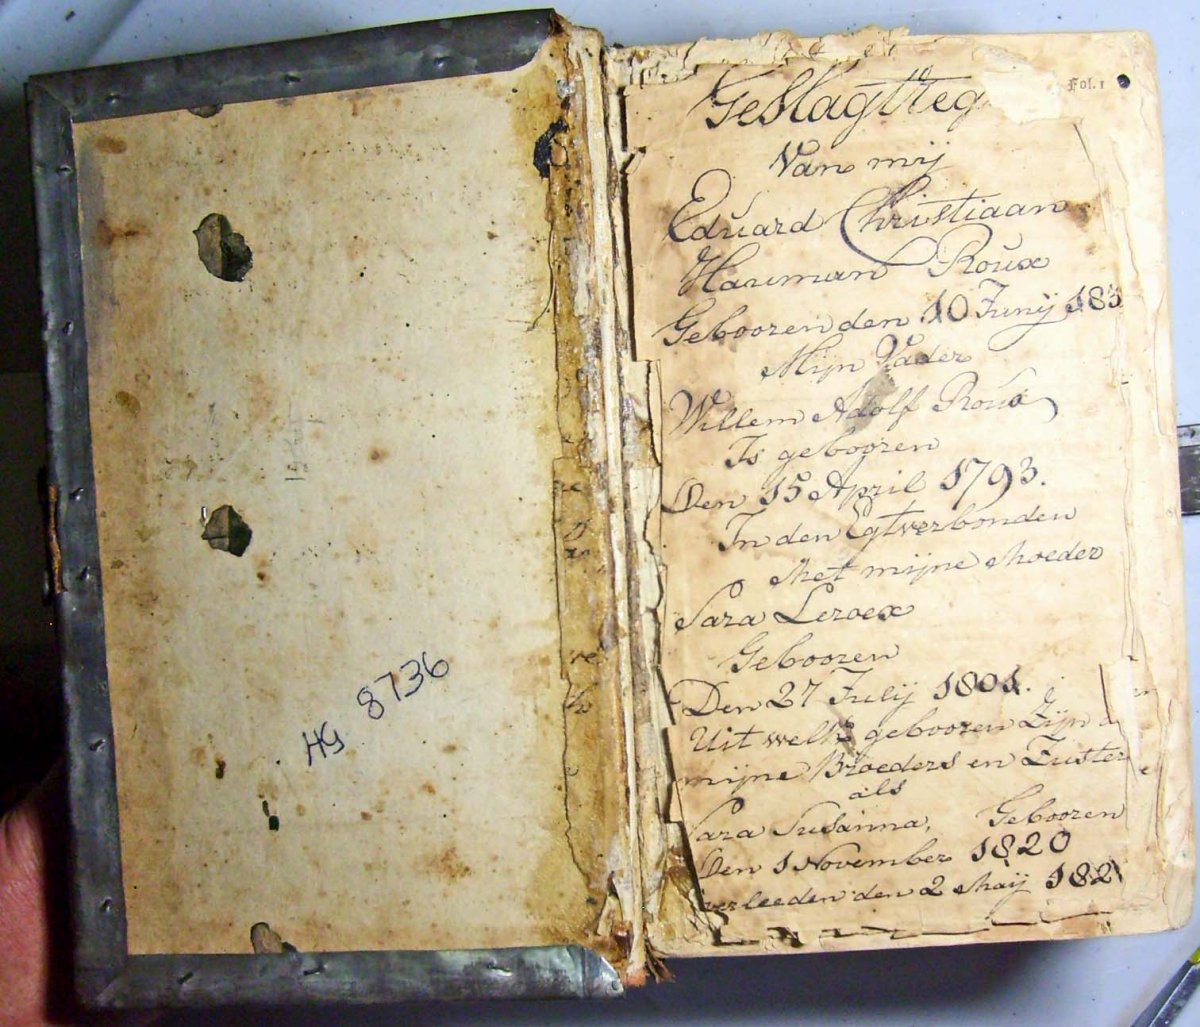 HG 8736
Fol. 1
Geslagtreg
Van mij
Eduard Christiaan
Hauman Roux
Geboozen den 10 Junij 183
Mijn Vader
Willem Adolf Roux
Is geboozen
Den 15 April 1793.
In den Egtverbonden
Met mijne Moeder
Sara Leroex
Geboozen
Den 27 Julij 1801.
Uit welke geboozen Zijn
mijne Broeders en Zuster
als
Sara Susanna, Geboozen
Den 1 November 1820
verleeden den 2 Maij 182